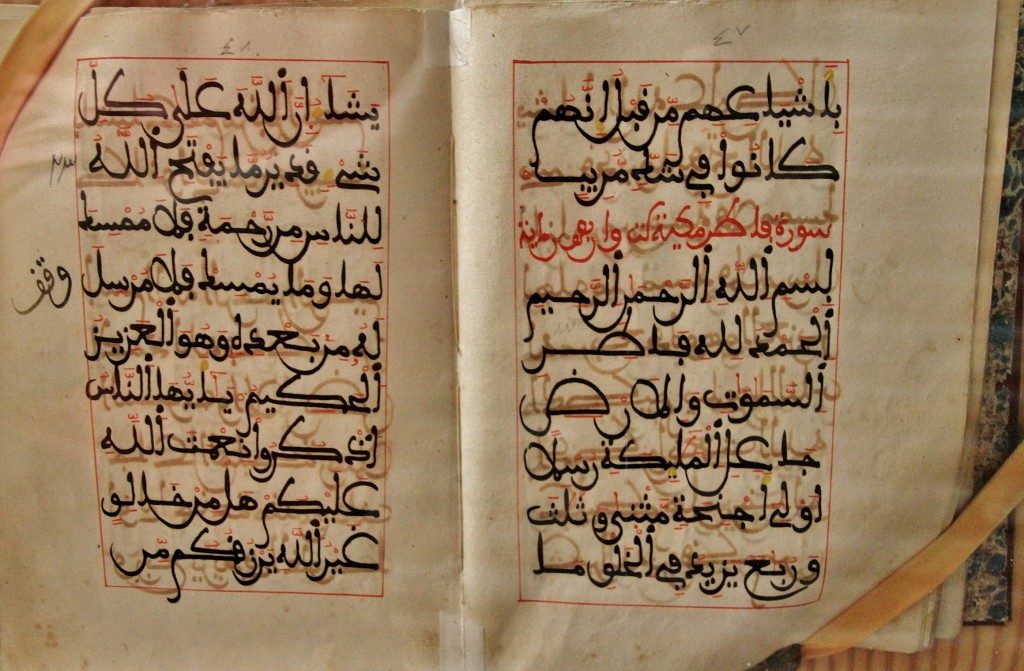 ٤٧
بأشياعهم من قبل إنهم
كانوا في شك مريب
سورة فاطر مكية واربعون اية
بسم الله الرحمن الرحيم
الحمد لله فاطر
السموت والارض
جاعل المليكة رسلا
اولي اجنحة مثنى وثلث
وربع يزيد في الخلق ما
٤٨
يشاء ان الله على كل
شيء قدير ما يفتح الله
للناس من رحمة فلا ممسك
لها وما يمسك فلا مرسل
له من بعده وهو العزيز
الحكيم يايها الناس
اذكروا نعمت الله
عليكم هل من خالق
غير الله يرزقكم من
وقف